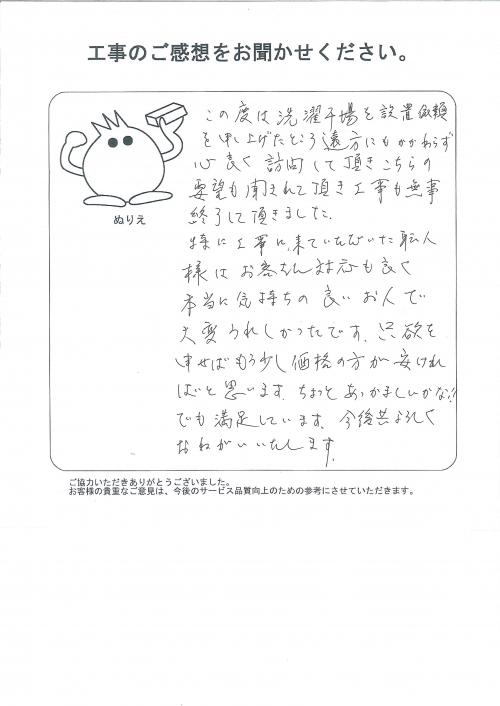 工事のご感想をお聞かせください。
この度は洗濯干場を設置依頼
を申し上げたところ遠方にもかかわらず
心良く訪問して頂きこちらの
要望も聞き入れて頂き工事も無事
終了して頂きました。
特に工事に来ていただいた職人
様はお客さん対応も良く
本当に気持ちの良いお人で
大変うれしかったです。只欲を
申せばもう少し価格の方が安けれ
ばと思います。ちょっとあつかましいかな!!
でも満足しています。今後共よろしく
おねがいいたします。
ぬりえ
ご協力いただきありがとうございました。
お客様の貴重なご意見は、今後のサービス品質向上のための参考にさせていただきます。